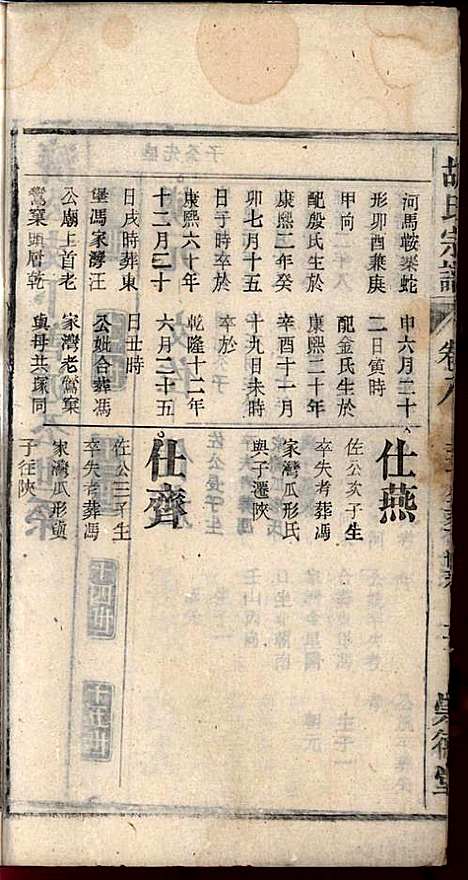 胡氏宗譜
卷八
崇德堂
河馬鞍藥蛇
形卯酉兼庚
甲向
配殷氏生於
康熙二年癸
卯七月十五
日子時卒於
康熙六十年
十二月二十
日戌時葬東
堡馮家灣汪
公廟上首老
鴛窠頭眉乾
申六月二十
二日寅時
配金氏生於
康熙二十年
辛酉十一月
十九日未時
卒於
乾隆十二年
六月二十五
日丑時
公妣合葬馮
家灣老鴛窠
與母共塚同
仕燕
佐公次子生
卒失考葬馮
家灣瓜形氏
與子遷陝
仕齊
佐公三子生
卒失考葬馮
家灣瓜形
子往陝